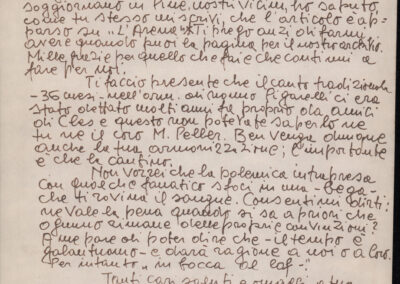 soggiornano in Pinè, nostri vicini, ho saputo,
come tu stesso mi scrivi, che l'articolo è ap-
parso su "L'Arena". Ti prego anzi di farmi
avere quando puoi la pagina per il nostro archivio.
Mille grazie per quello che fai e che continui a
fare per noi.
Ti faccio presente che il canto tradizionale
-36 mesi- nell'orm. di nomo Pigarelli ci era
stato dettato molti anni fa proprio da amici
di Cles e questo non potevate saperlo ne
tu ne il coro M. Peller. Ben venga dunque
anche la tua armonizzazione; l'importante
è che la cantino.
Non vorrei che la polemica intrapresa
con qualche fanatico sfoci in una -bega-
che ti rovina il sangue. Consentimi dirti:
ne vale la pena quando si sa a priori che
ognuno rimane delle proprie convinzioni?
A me pare di poter dire che -il tempo è
galantuomo- e darà ragione a noi o a loro.
Per intanto "in bocca al
Tanti cari saluti e